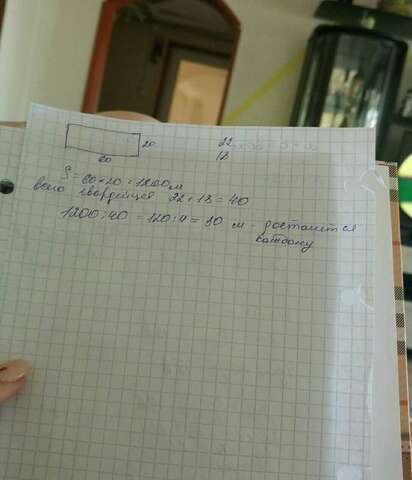 20
60
22
18
S = 60 × 20 = 1200 м
всего гвардейцев 22 + 18 = 40
1200 : 40 = 120 : 4 = 30 м - достанется
каждому